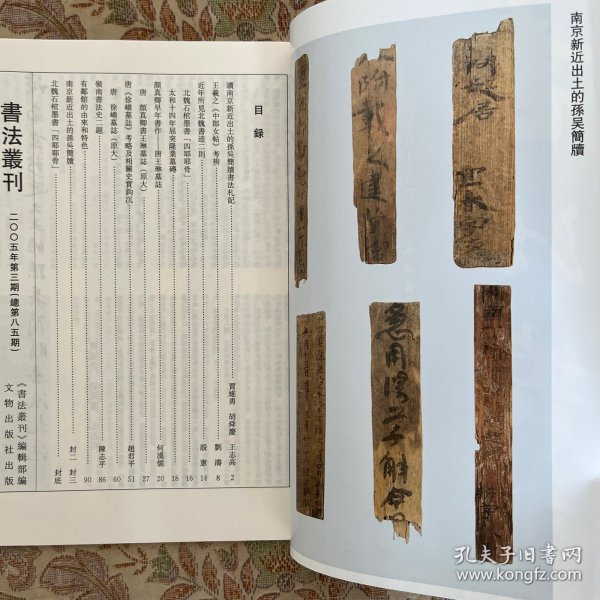 南京新近出土的孫吴簡牘
目録
讀南京新近出土的孫吳簡牘書法札記 賈維勇 胡舜慶 王志高 2
王羲之《中郎女帖》考辨 劉濤 8
近年所見北魏書迹二則 殷憲 14
北魏石棺墨書「四耶耶骨」 16
太和十四年屈突隆業墓磚 18
顔真卿早年書作——唐王琳墓誌 何漢儒 20
唐 顔真卿書王琳墓誌(原大) 27
唐《徐嶠墓誌》考略及相關史實鈎沉 趙君平 51
唐 徐嶠墓誌(原大) 60
嶺南書法史二題 陳志平 86
有鄰館的由來和特色 90
南京新近出土的孫吳簡牘 封二 封三
北魏石棺墨書「四耶耶骨」 封底
書法叢刊
二〇〇五年第三期(總第八五期)
《書法叢刊》編輯部編
文物出版社出版
孔夫子旧書网
www.kongfz.com